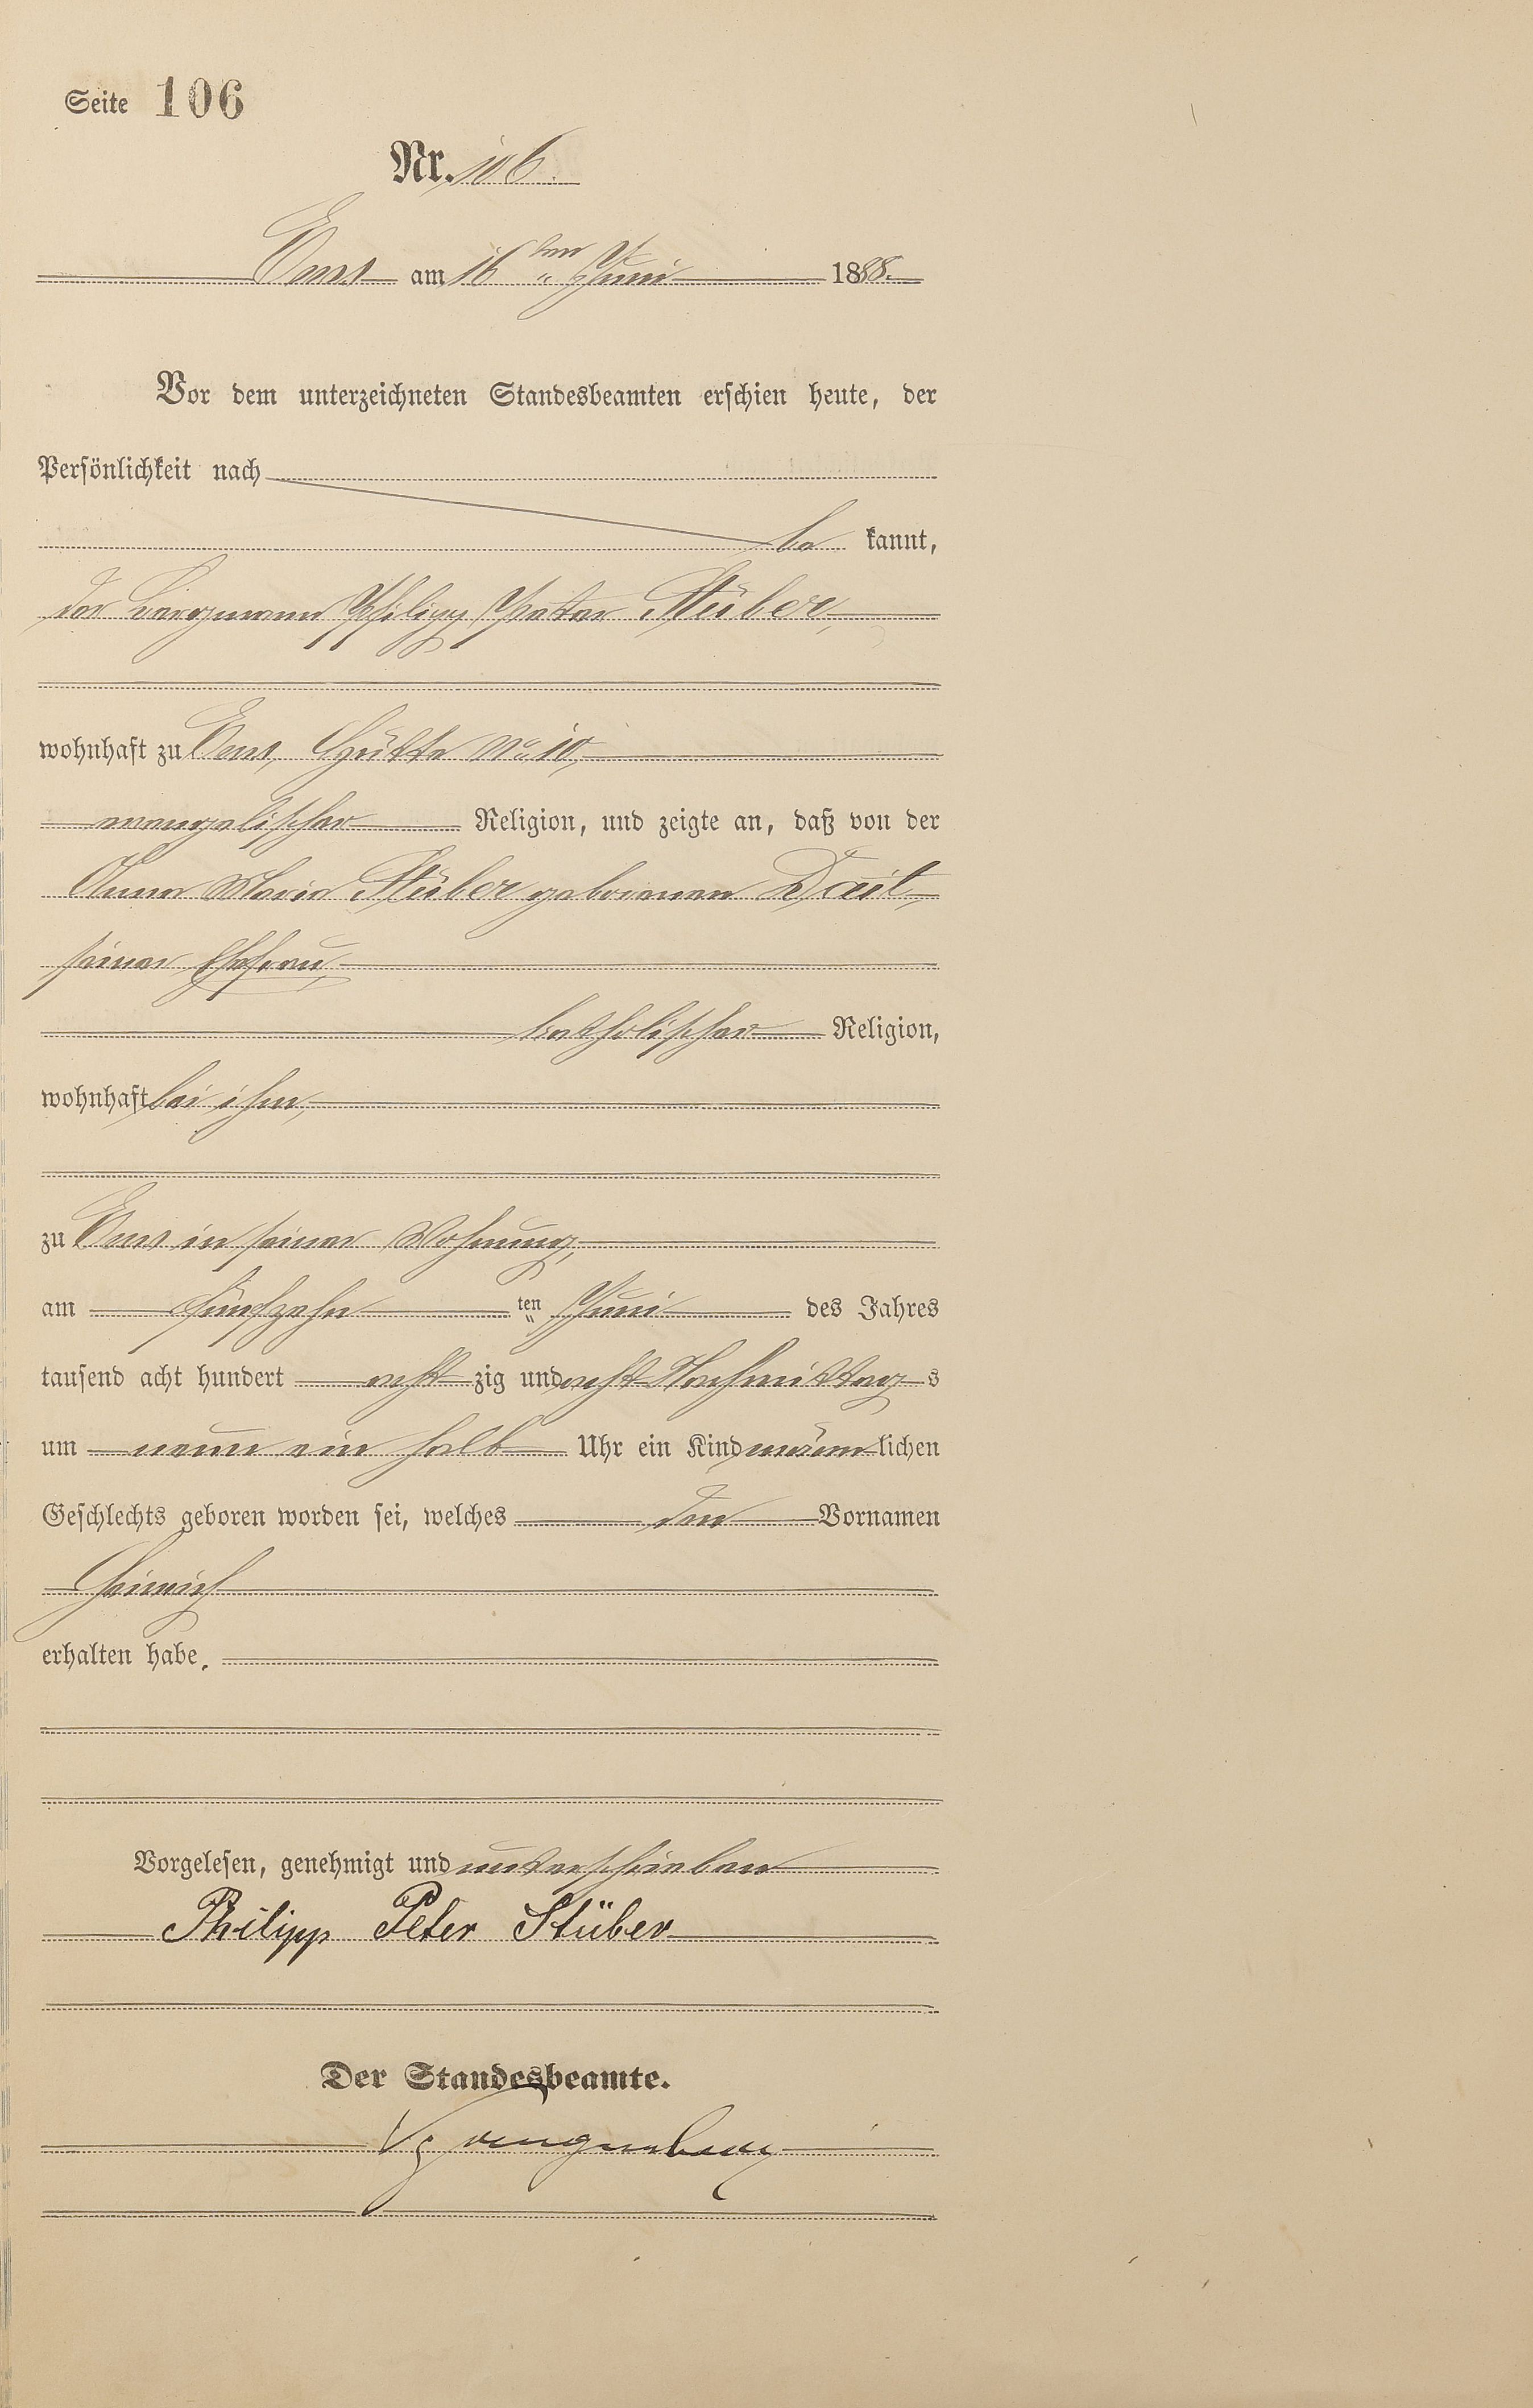 Seite 106
Nr. 106.
Ems am 16ten Juni 1888.
Vor dem unterzeichneten Standesbeamten erschien heute, der
Persönlichkeit nach
be kannt,
der Bergmann Philipp Peter Stüber,
wohnhaft zu Ems, Hütte No 10,
evangelischer Religion, und zeigte an, daß von der
Anna Maria Stüber geborenen Dait,
seiner Ehefrau,
katholischer Religion,
wohnhaft bei ihm,
zu Ems in seiner Wohnung,
am fünfzehn ten Juni des Jahres
tausend acht hundert acht zig und acht Nachmittag s
um neun ein halb Uhr ein Kind männ lichen
Geschlechts geboren worden sei, welches den Vornamen
Heinrich
erhalten habe.
Vorgelesen, genehmigt und unterschrieben
Philipp Peter Stüber
Der Standesbeamte.